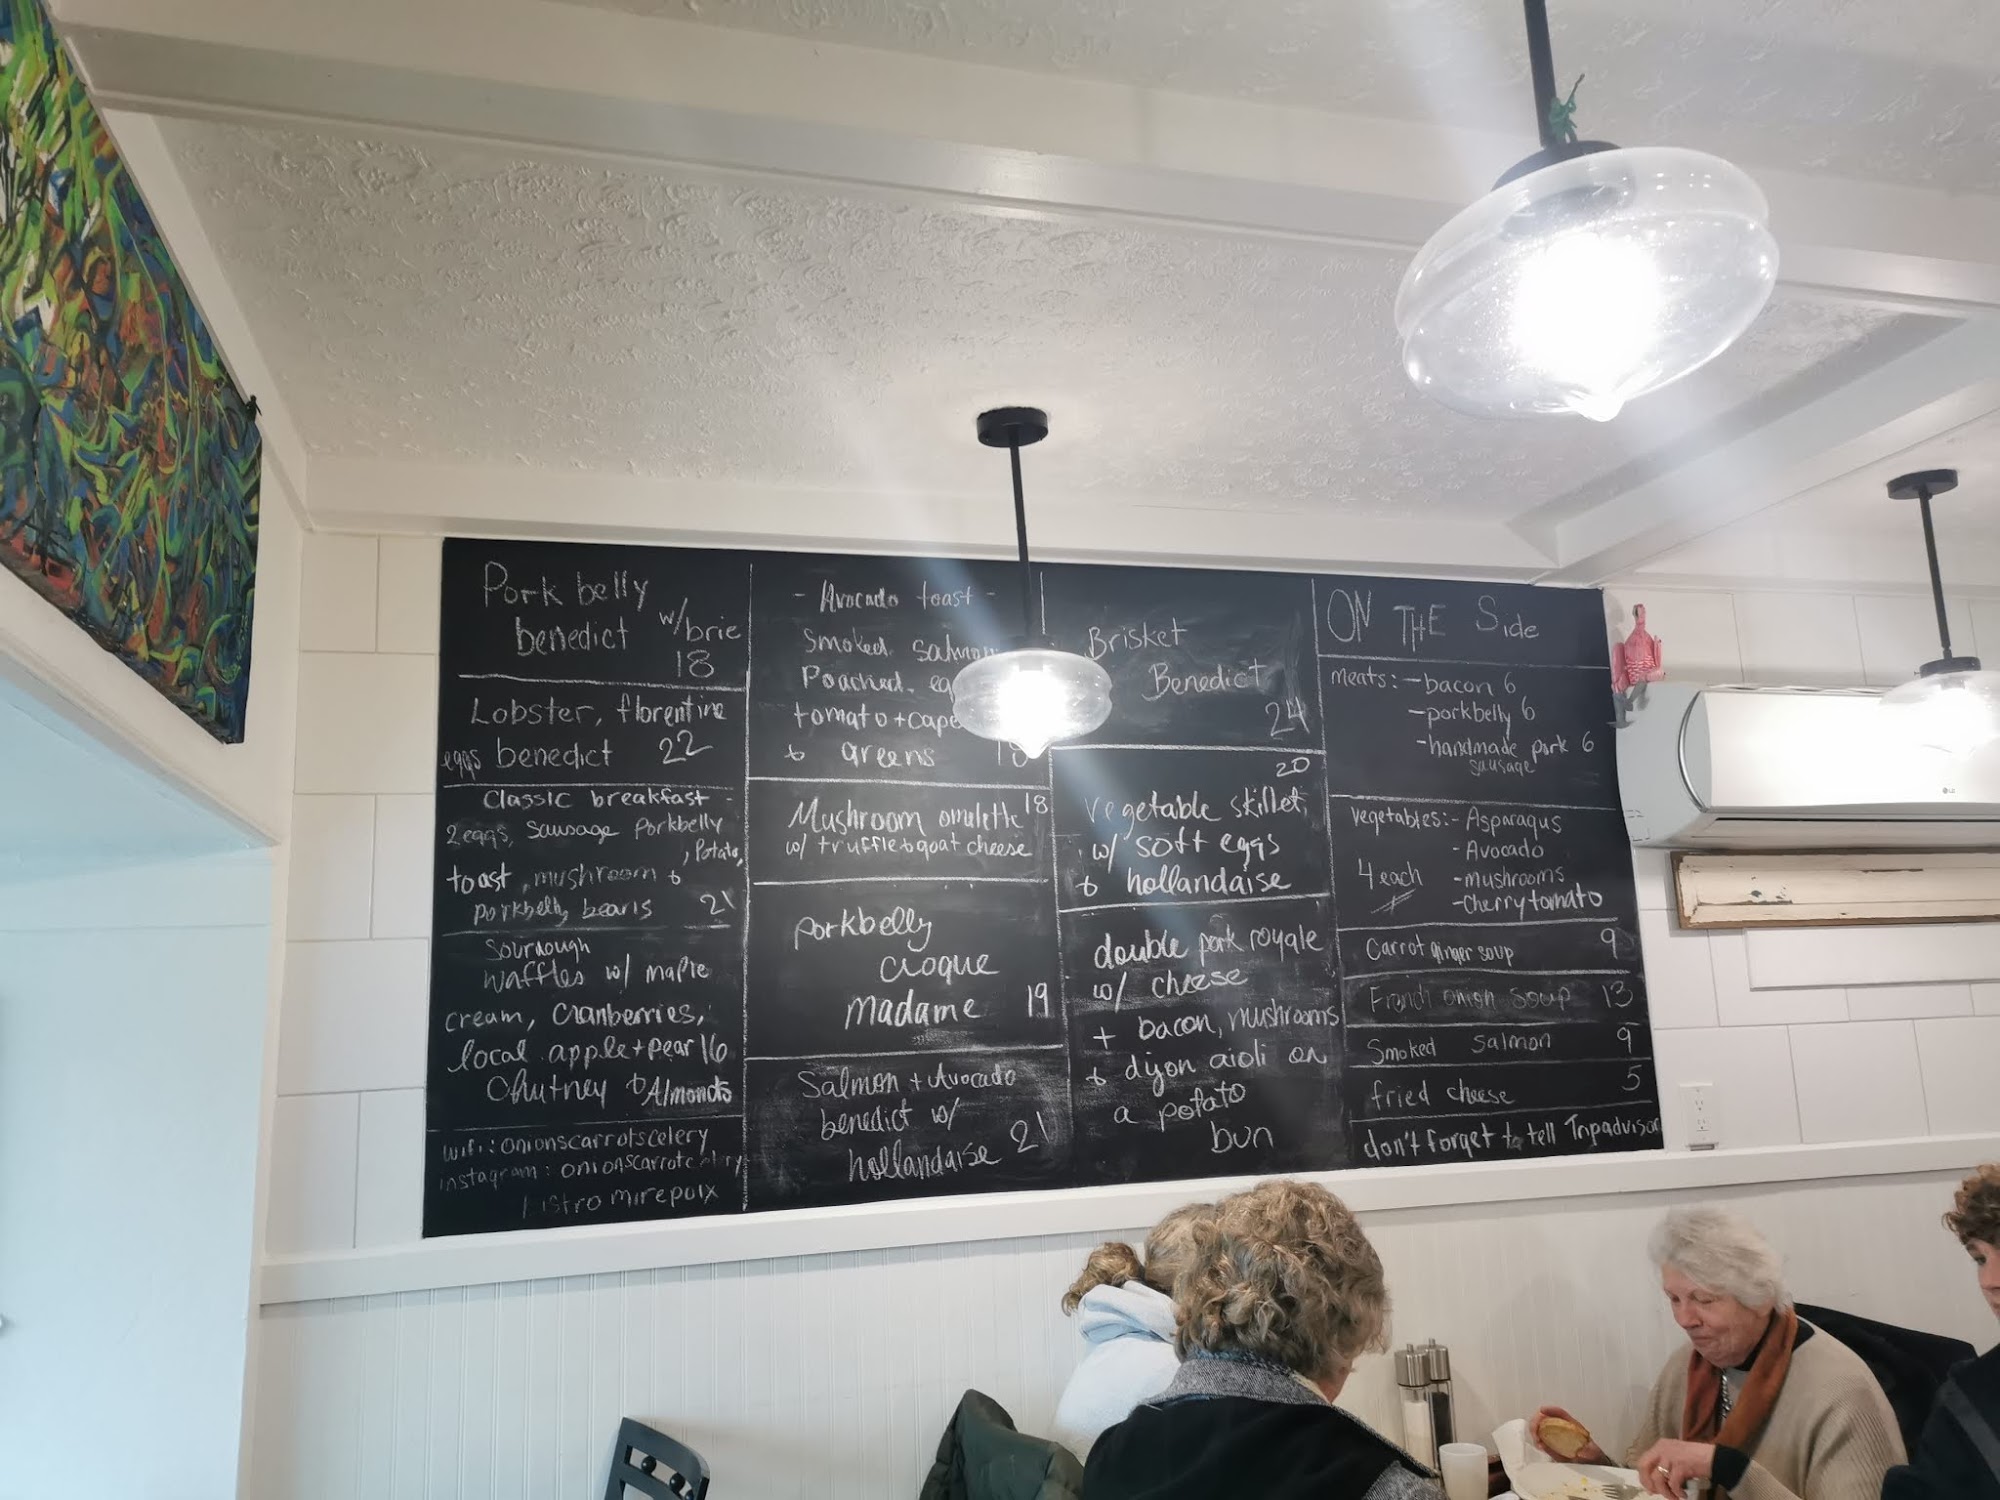 Pork belly
benedict w/brie
18
Lobster, florentine
eggs benedict 22
Classic breakfast -
2 eggs, sausage porkbelly
, potato,
toast, mushroom &
porkbelly beans 21
Sourdough
waffles w/ maple
cream, cranberries,
local apple + pear 16
Chutney & Almonds
wifi: onionscarrotscelery
instagram: onionscarrotcelery
bistro mirepoix
- Avocado toast -
Smoked salmon
Poached
tomato + cape
& greens 18
Mushroom omelette 18
w/ truffle & goat cheese
porkbelly
croque
madame 19
Salmon + Avocado
benedict w/
hollandaise 21
Brisket
Benedict
24
20
vegetable skillet,
w/ soft eggs
& hollandaise
double pork royale
w/ cheese
+ bacon, mushrooms
& dijon aioli on
a potato
bun
ON THE Side
meats: - bacon 6
- porkbelly 6
- handmade pork 6
sausage
vegetables: - Asparagus
- Avocado
4 each - mushrooms
- Cherry tomato
Carrot ginger soup 9
French onion soup 13
Smoked Salmon 9
fried cheese 5
don't forget to tell Tripadvisor
LG